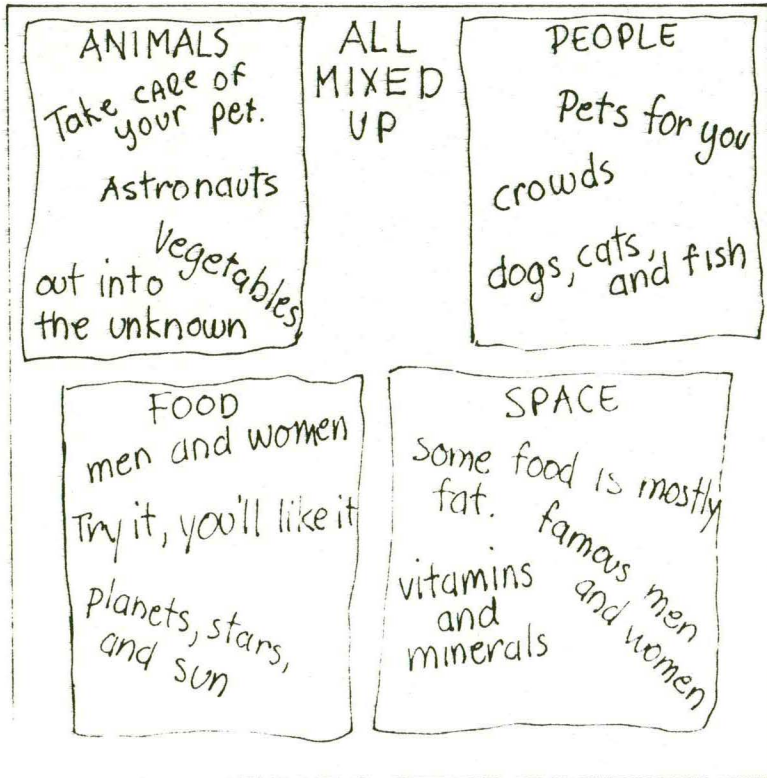 ANIMALS
Take CARe of
your pet.
Astronauts
vegetables
out into
the unknown
ALL
MIXED
UP
PEOPLE
Pets for you
crowds
dogs, cats,
and fish
FOOD
men and women
Try it, you'll like it
planets, stars,
and sun
SPACE
Some food is mostly
fat.
famous men
and women
vitamins
and
minerals